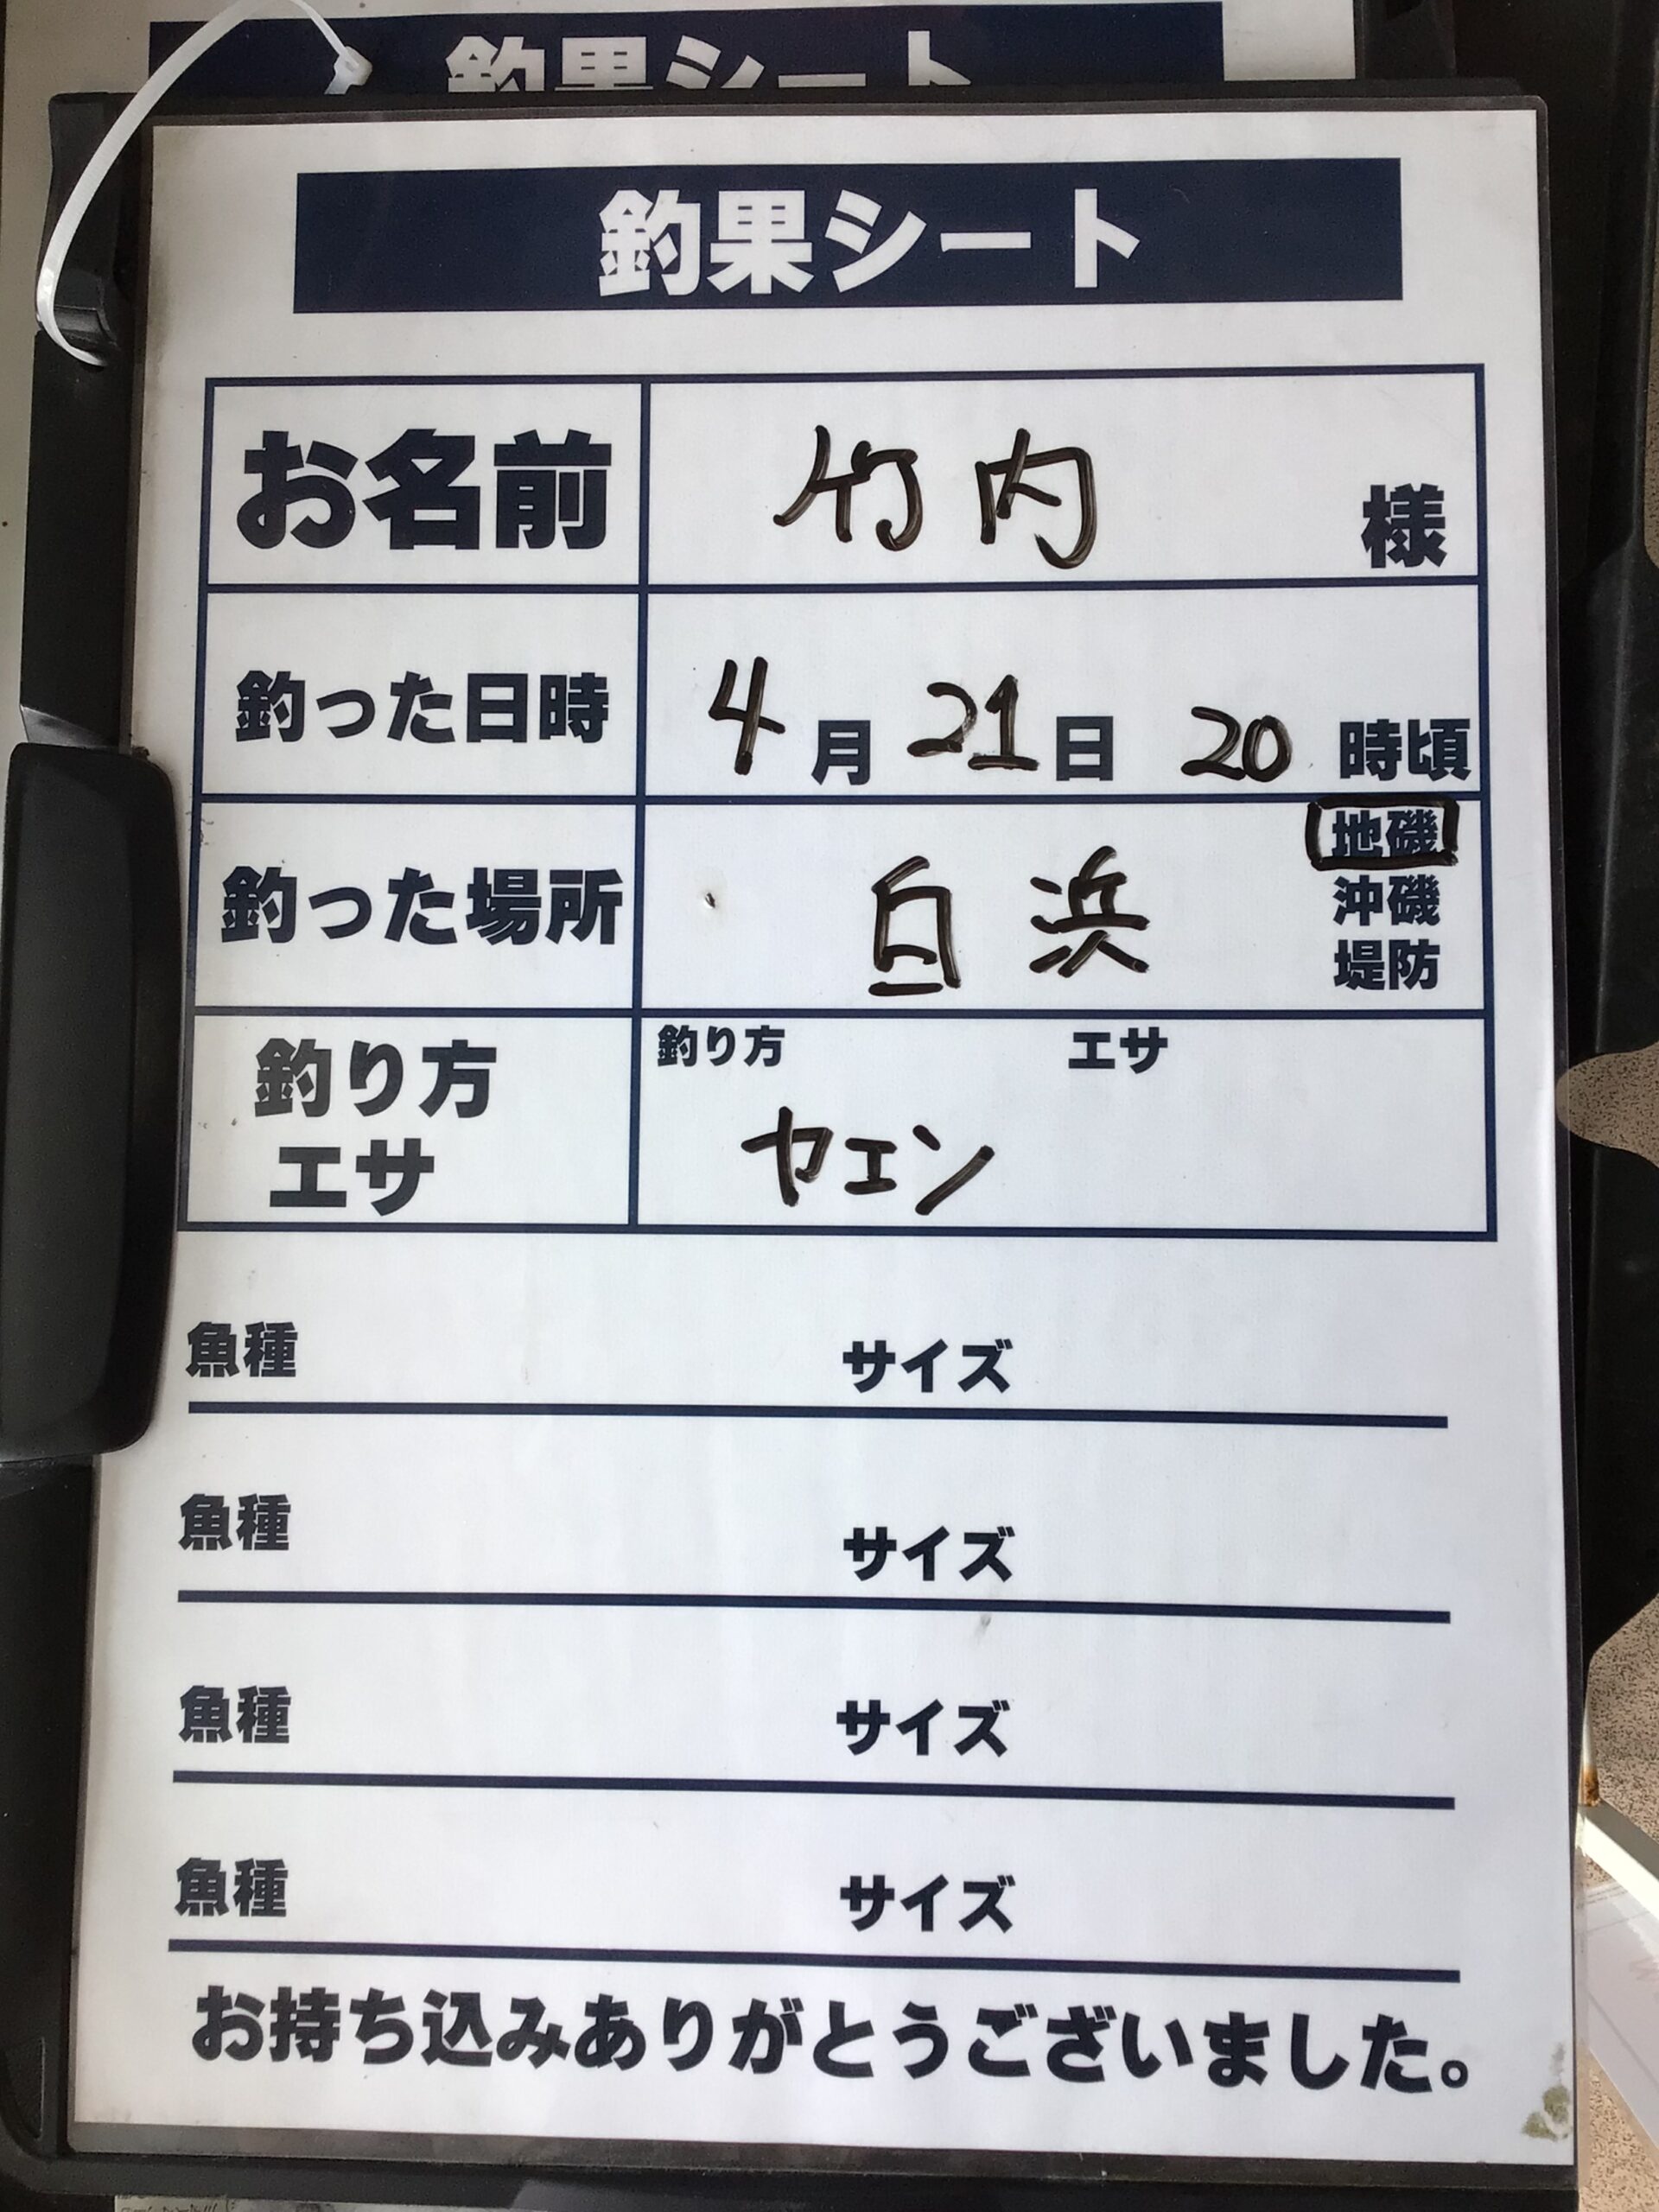 釣果シート
釣果シート
お名前 竹内 様
釣った日時 4月21日 20時頃
釣った場所 白浜 地磯
沖磯
堤防
釣り方 エサ
釣り方
エサ
ヤエン
魚種 サイズ
魚種 サイズ
魚種 サイズ
魚種 サイズ
お持ち込みありがとうございました。